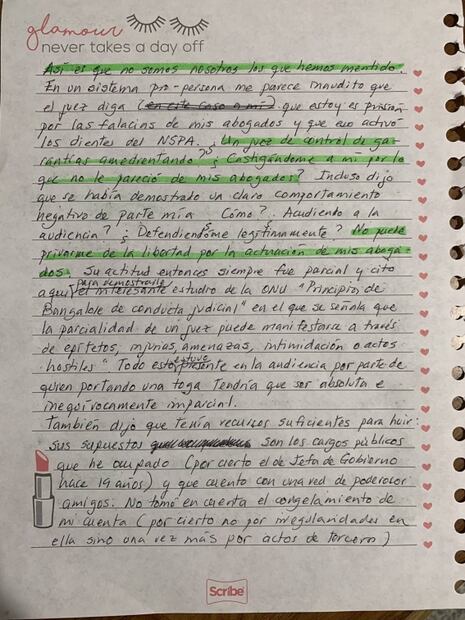 glamour
never takes a day off
Así es que no somos nosotros los que hemos mentido.
En un sistema pro-persona me parece inaudito que
el juez diga (en este caso a mi) que estoy en prisión
por las falacias de mis abogados y que eso activó
los dientes del NSPA. ¿Un juez de control de ga-
rantías amedrentando? ¿Castigándome a mí por lo
que no le pareció de mis abogados? Incluso dijo
que se había demostrado un claro comportamiento
negativo de parte mía ¿Cómo? ¿Acudiendo a la
audiencia? ¿Defendiéndome legítimamente? No puede
privarme de la libertad por la actuación de mis aboga-
dos. Su actitud entonces siempre fue parcial y cito
para demostrarlo
aquí el interesante estudio de la ONU "Principios de
Bangalore de conducta judicial" en el que se señala que
la parcialidad de un juez puede manifestarse a través
de epítetos, injurias, amenazas, intimidación o actos
hostiles" Todo esto estuvo presente en la audiencia por parte de
quien portando una toga tendría que ser absoluta e
inequívocamente imparcial.
También dijo que tenía recursos suficientes para huir:
sus supuestos son los cargos públicos
que he ocupado (por cierto el de Jefa de Gobierno
hace 19 años) y que cuento con una red de poderosos
amigos. No tomó en cuenta el congelamiento de
mi cuenta (por cierto no por irregularidades en
ella sino una vez más por actos de terceros)
Scribe